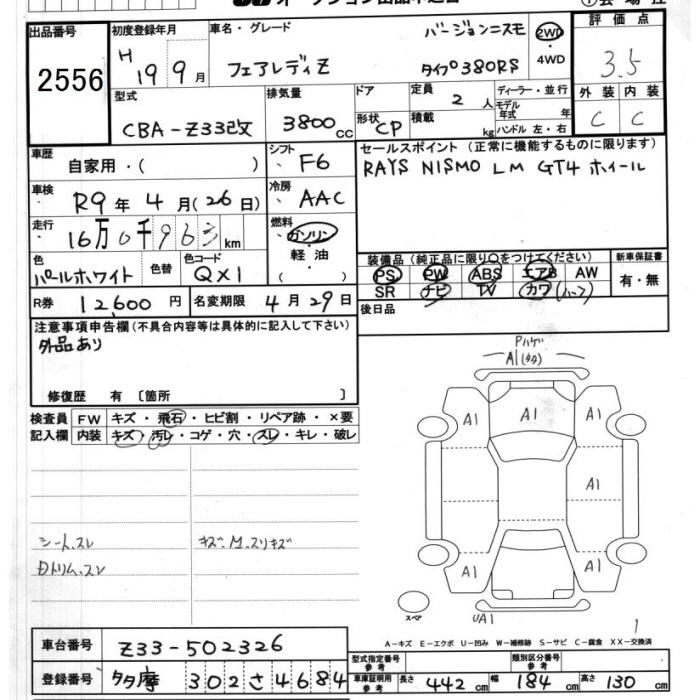 オークション出品申込書
出品番号 2556
初度登録年月 H 19 9月
車名・グレード フェアレディZ バージョンニスモ タイプ380RS
2WD ・ 4WD
評価点 3.5
型式 CBA-Z33改
排気量 3800cc
ドア 形状 CP
定員 2人 積載 kg
ディーラー・並行
モデル年式 年
ハンドル 左・右
外装 C 内装 C
車歴 自家用・( )
シフト F6
セールスポイント (正常に機能するものに限ります)
RAYS NISMO LM GT4 ホイール
車検 R9年 4月(26日)
冷房 AAC
走行 16万0千963km
燃料 ガソリン・軽油・( )
色 パールホワイト 色替 色コード QX1
装備品 (純正品に限り○をつけてください)
PS PW ABS エアB AW
SR ナビ TV カワ(ハーフ)
新車保証書 有・無
R券 12,600円 名変期限 4月29日
後日品
注意事項申告欄(不具合内容等は具体的に記入して下さい)
外品あり
修復歴 有 〔箇所 〕
検査員記入欄
FW キズ・飛石・ヒビ割・リペア跡・×要
内装 キズ・汚レ・コゲ・穴・スレ・キレ・破レ
シート.スレ
Dトリム.スレ
キズ.M.スリキズ
Pハゲ
A1(タタ)
A1 A1 A1
A1
A1 A1
スペア
UA1
1
A-キズ E-エクボ U-凹み W-補修跡 S-サビ C-腐食 XX-交換済
車台番号 Z33-502326
登録番号 多摩 302さ4684
型式指定番号 参考
類別区分番号 参考
車庫証明用 参考 長さ 442cm 幅 184cm 高さ 130cm